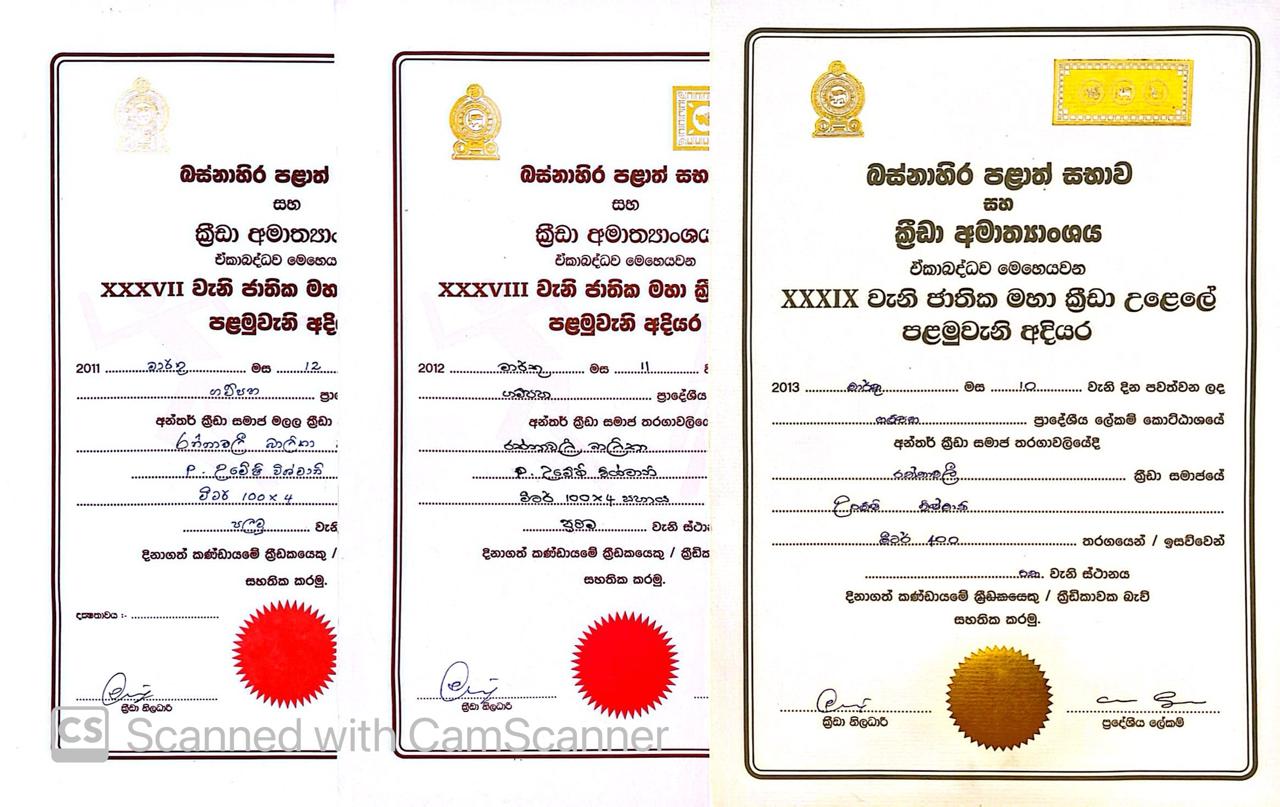 බස්නාහිර පළාත්
සහ
ක්‍රීඩා අමාත්‍යාං
ඒකාබද්ධව මෙහෙය
XXXVII වැනි ජාතික මහ
පළමුවැනි අදි
2011 මාර්තු මස 12
ගම්පහ
අන්තර් ක්‍රීඩා සමාජ මලල ක්‍රීඩා
රත්නාවලී බාලිකා
P. උමේෂි විශ්වානි
මීටර් 100 × 4
පලමු වැනි
දිනාගත් කණ්ඩායමේ ක්‍රීඩකයෙකු /
සහතික කරමු.
දක්ෂතාවය :-
ක්‍රීඩා නිලධාරී
බස්නාහිර පළාත් සභ
සහ
ක්‍රීඩා අමාත්‍යාංශය
ඒකාබද්ධව මෙහෙයවන
XXXVIII වැනි ජාතික මහා ක්‍රී
පළමුවැනි අදියර
2012 මාර්තු මස 11
ගම්පහ ප්‍රාදේශීය
අන්තර් ක්‍රීඩා සමාජ තරගාවලියේ
රත්නාවලී බාලිකා
P. උමේෂි විශ්වානි
මීටර් 100 × 4 සහාය
ප්‍රථම වැනි ස්ථා
දිනාගත් කණ්ඩායමේ ක්‍රීඩකයෙකු / ක්‍රීඩි
සහතික කරමු.
ක්‍රීඩා නිලධාරී
බස්නාහිර පළාත් සභාව
සහ
ක්‍රීඩා අමාත්‍යාංශය
ඒකාබද්ධව මෙහෙයවන
XXXIX වැනි ජාතික මහා ක්‍රීඩා උළෙලේ
පළමුවැනි අදියර
2013 මාර්තු මස 10 වැනි දින පවත්වන ලද
ගම්පහ ප්‍රාදේශීය ලේකම් කොට්ඨාශයේ
අන්තර් ක්‍රීඩා සමාජ තරගාවලියේදී
රත්නාවලී ක්‍රීඩා සමාජයේ
උමේෂි විශ්වානි
මීටර් 400 තරගයෙන් / ඉසව්වෙන්
වැනි ස්ථානය
දිනාගත් කණ්ඩායමේ ක්‍රීඩකයෙකු / ක්‍රීඩිකාවක බැව්
සහතික කරමු.
ක්‍රීඩා නිලධාරී
ප්‍රාදේශීය ලේකම්
CS Scanned with CamScanner